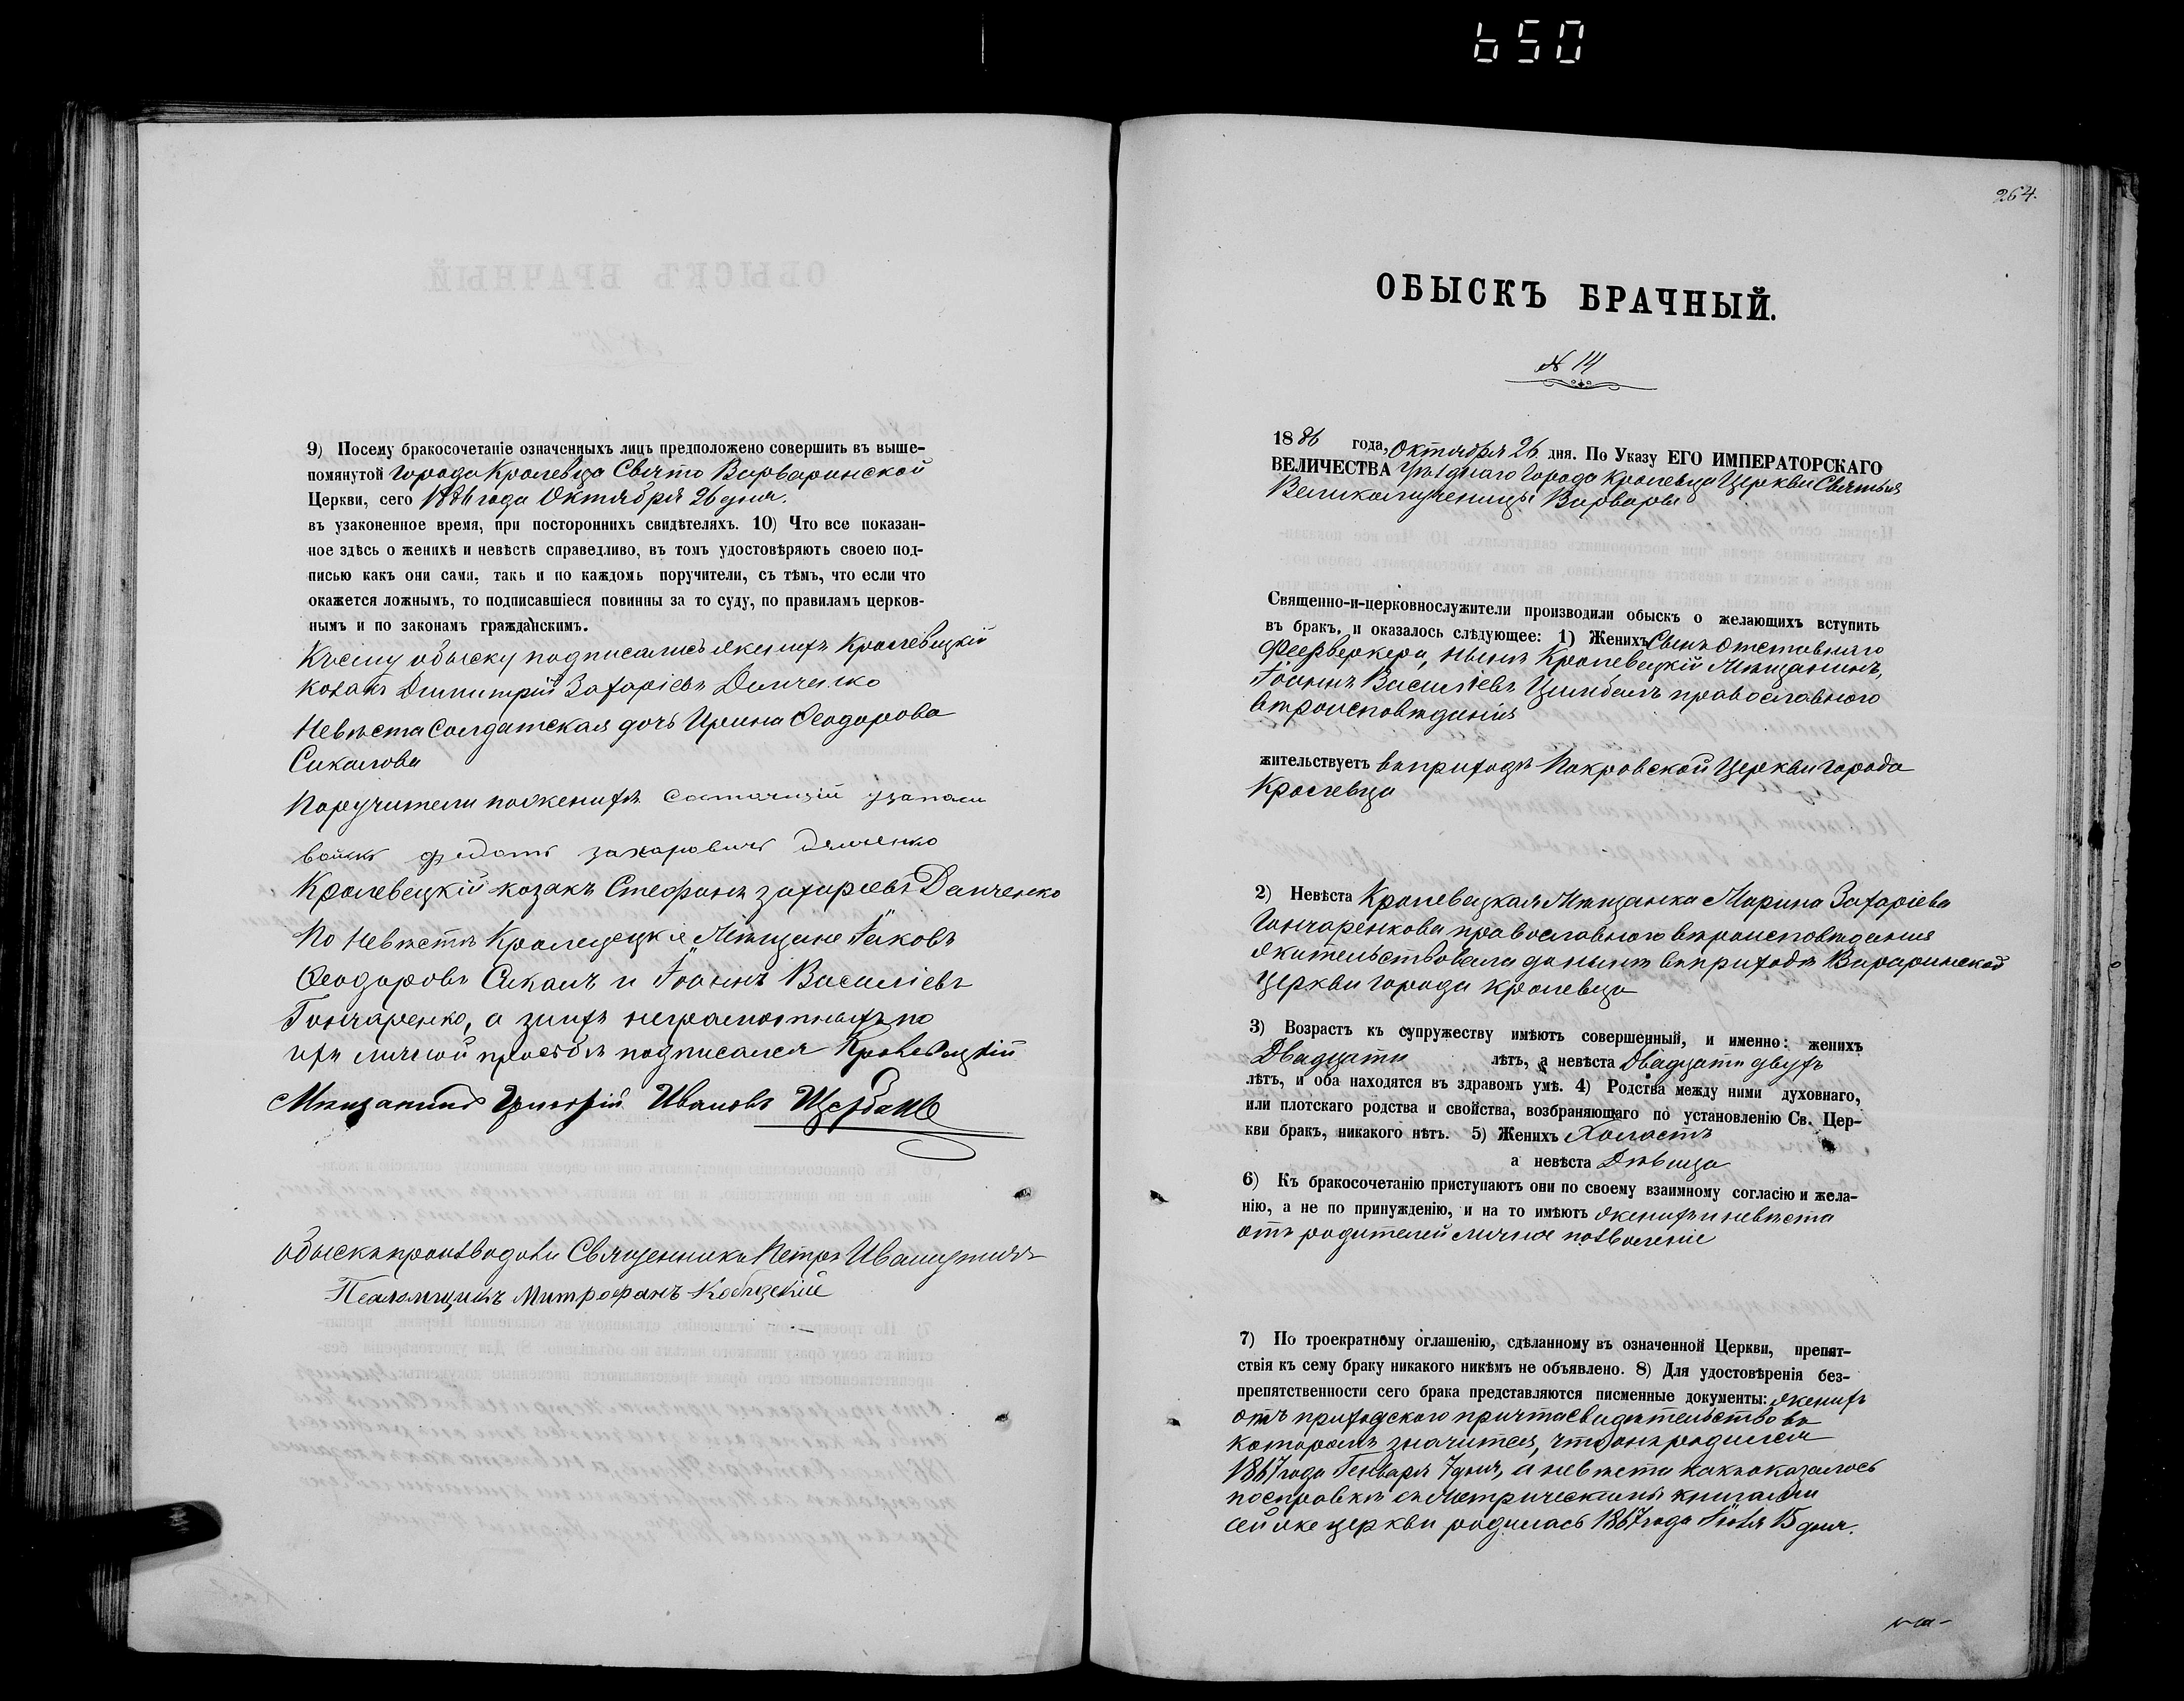 650
9) Посему бракосочетаніе означенныхъ лицъ предположено совершить въ выше-
помянутой Города Кролевца Свято Варваринской
Церкви, сего 1886 года Октября 26 дня.
въ узаконенное время, при постороннихъ свидѣтеляхъ. 10) Что все показан-
ное здѣсь о женихѣ и невѣстѣ справедливо, въ томъ удостовѣряютъ своею под-
писью какъ они сами, такъ и по каждомъ поручители, съ тѣмъ, что если что
окажется ложнымъ, то подписавшіеся повинны за то суду, по правиламъ церков-
нымъ и по законамъ гражданскимъ.
Къ сему обыску подписались женихъ Кролевецкій
козакъ Димитрій Захаріевъ Демченко
Невѣста Солдатская дочь Ирина Ѳеодорова
Сикалова
Поручители по женихѣ состоящій
войскъ федотъ захаровичъ демченко
Кролевецкій козакъ Стефанъ захаріевъ Демченко
По Невѣстѣ Кролевецкіе Мѣщане Іаковъ
Ѳеодоровъ Сикалъ и Іоаннъ Василіевъ
Гончаренко, а за нихъ неграмотныхъ по
ихъ личной просьбѣ подписался Кролевецкій
Мѣщанинъ Григорій Ивановъ Щербакъ
Обыскъ производили Священникъ Петръ
Псаломщикъ Митрофанъ
264.
ОБЫСКЪ БРАЧНЫЙ.
№ 14
1886 года, Октября 26 дня. По Указу ЕГО ИМПЕРАТОРСКАГО
ВЕЛИЧЕСТВА Уѣзднаго Города Кролевца Церкви Святыя
Великомученицы Варвары
Священно-и-церковнослужители производили обыскъ о желающихъ вступить
въ бракъ, и оказалось слѣдующее: 1) Женихъ Сынъ Отставнаго
Феерверкера, нынѣ Кролевецкій Мѣщанинъ,
Іоаннъ Василіевъ Цимбалъ православнаго
вѣроисповѣданія
жительствуетъ въ приходѣ Покровской Церкви города
Кролевца
2) Невѣста Кролевецкая Мѣщанка Марина Захаріева
Гончаренкова православного вѣроисповѣдания
жительствовала донынѣ въ приходѣ Вараринской
Церкви города Кролевца
3) Возрастъ къ супружеству имѣютъ совершенный, и именно: женихъ
Двадцати лѣтъ, а невѣста Двадцати двухъ
лѣтъ, и оба находятся въ здравомъ умѣ. 4) Родства между ними духовнаго,
или плотскаго родства и свойства, возбраняющаго по установленію Св. Цер-
кви бракъ, никакого нѣтъ. 5) Женихъ Холостъ
а невѣста Дѣвица
6) Къ бракосочетанію приступаютъ они по своему взаимному согласію и жела-
нію, а не по принужденію, и на то имѣютъ женихъ и невѣста
отъ родителей личное позволеніе
7) По троекратному оглашенію, сдѣланному въ означенной Церкви, препят-
ствія къ сему браку никакого никѣмъ не объявлено. 8) Для удостовѣренія без-
препятственности сего брака представляются писменные документы: женихъ
отъ приходскаго причта свидѣтельство въ
которомъ значится, что онъ родился
1867 года Генваря 7 дня, а невѣста какъ оказалось
по справкѣ съ Метрическими книгами
сей же церкви родилась 1867 года Іюля 15 дня.